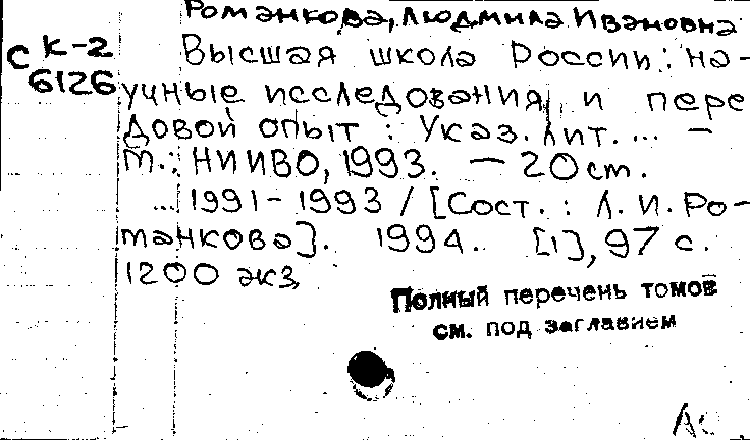 Романкова, Людмила Ивановна
С К-2
6126
Высшая школа России: на-
учные исследования и пере
довой опыт: Указ. лит. ... –
М.: НИИВО, 1993. – 20 см.
... 1991-1993 / [Сост.: Л.И. Ро-
манкова]. 1994. [1], 97 с.
1200 экз.
Полный перечень томов
см. под заглавием